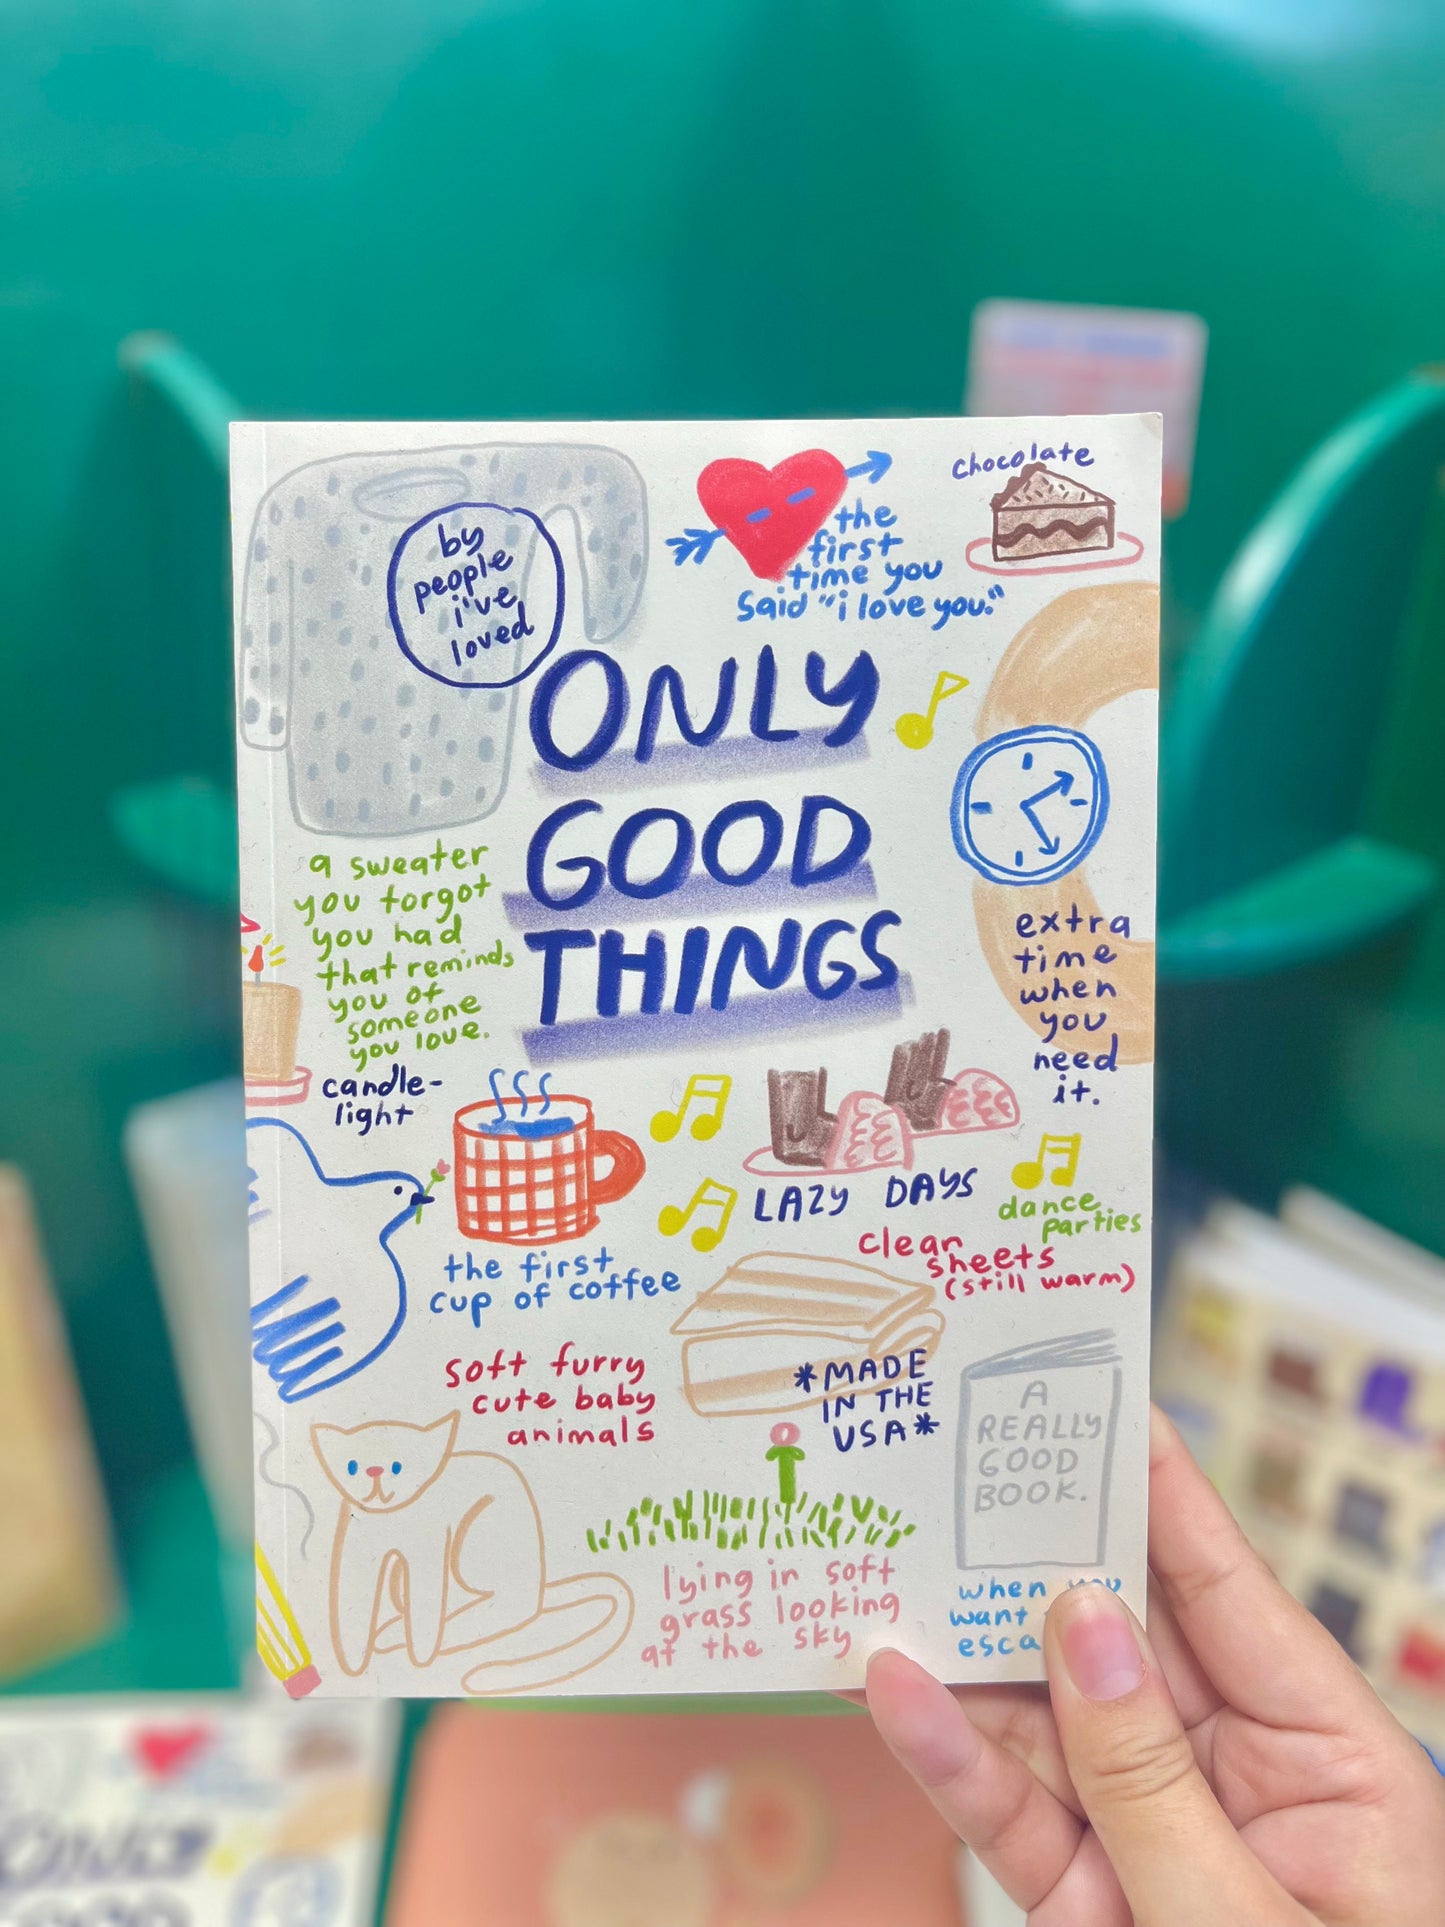 by
people
i've
loved
the
first
time you
said "i love you."
chocolate
ONLY
GOOD
THINGS
a sweater
you forgot
you had
that reminds
you of
someone
you love.
extra
time
when
you
need
it.
candle-
light
the first
cup of coffee
LAZY DAYS
dance
parties
clean
sheets
(still warm)
soft furry
cute baby
animals
*MADE
IN THE
USA*
A
REALLY
GOOD
BOOK.
lying in soft
grass looking
at the sky
when you
want